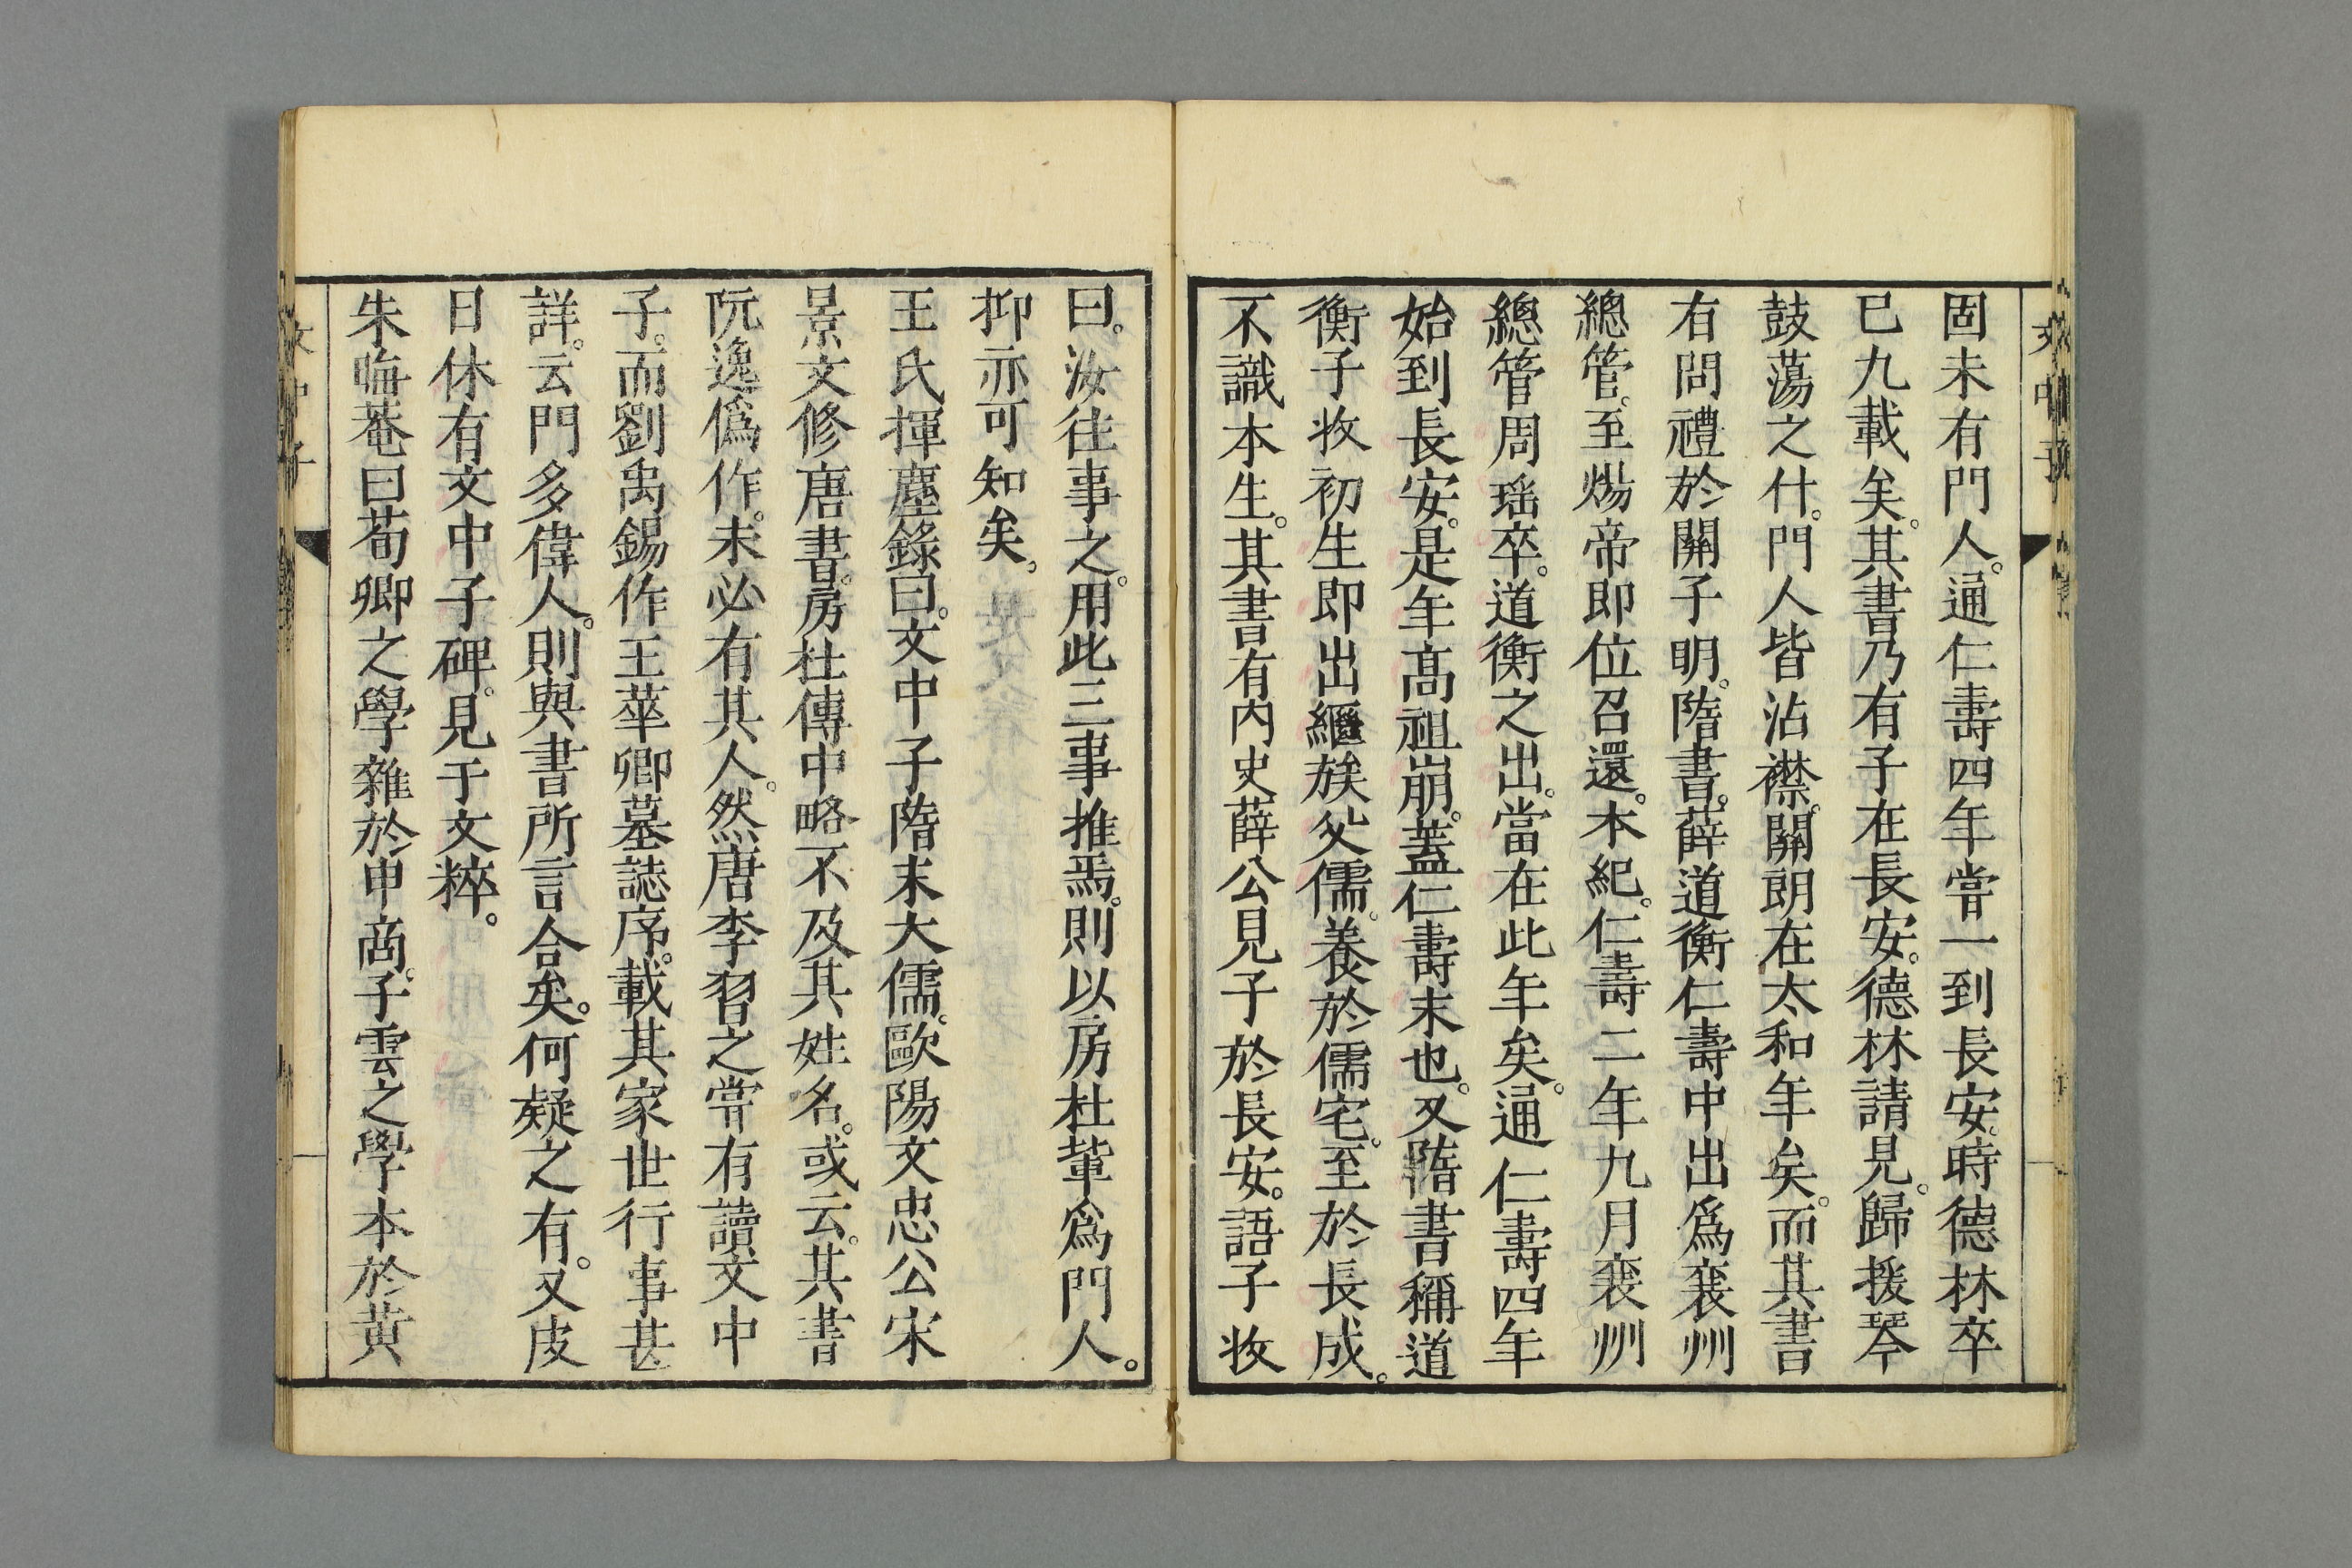 固未有門人。通仁壽四年嘗一到長安。時德林卒
已九載矣。其書乃有子在長安。德林請見。歸援琴
鼓蕩之什。門人皆沾襟。關朗在太和年矣。而其書
有問禮於關子明。隋書。薛道衡仁壽中出爲襄州
總管。至煬帝即位召還。本紀。仁壽二年九月襄州
總管周瑤卒。道衡之出。當在此年矣。通仁壽四年
始到長安。是年高祖崩。蓋仁壽末也。又隋書稱道
衡子收初生即出繼族父儒。養於儒宅。至於長成。
不識本生。其書有內史薛公見子於長安。語子收
曰。汝往事之。用此三事推焉。則以房杜輩爲門人。
抑亦可知矣。
王氏揮塵錄曰。文中子隋末大儒。歐陽文忠公宋
景文修唐書。房杜傳中略不及其姓名。或云。其書
阮逸僞作。未必有其人。然唐李習之嘗有讀文中
子。而劉禹錫作王華卿墓誌序。載其家世行事甚
詳。云門多偉人。則與書所言合矣。何疑之有。又皮
日休有文中子碑。見于文粹。
朱晦菴曰荀卿之學雜於申商。子雲之學本於黃
文中子